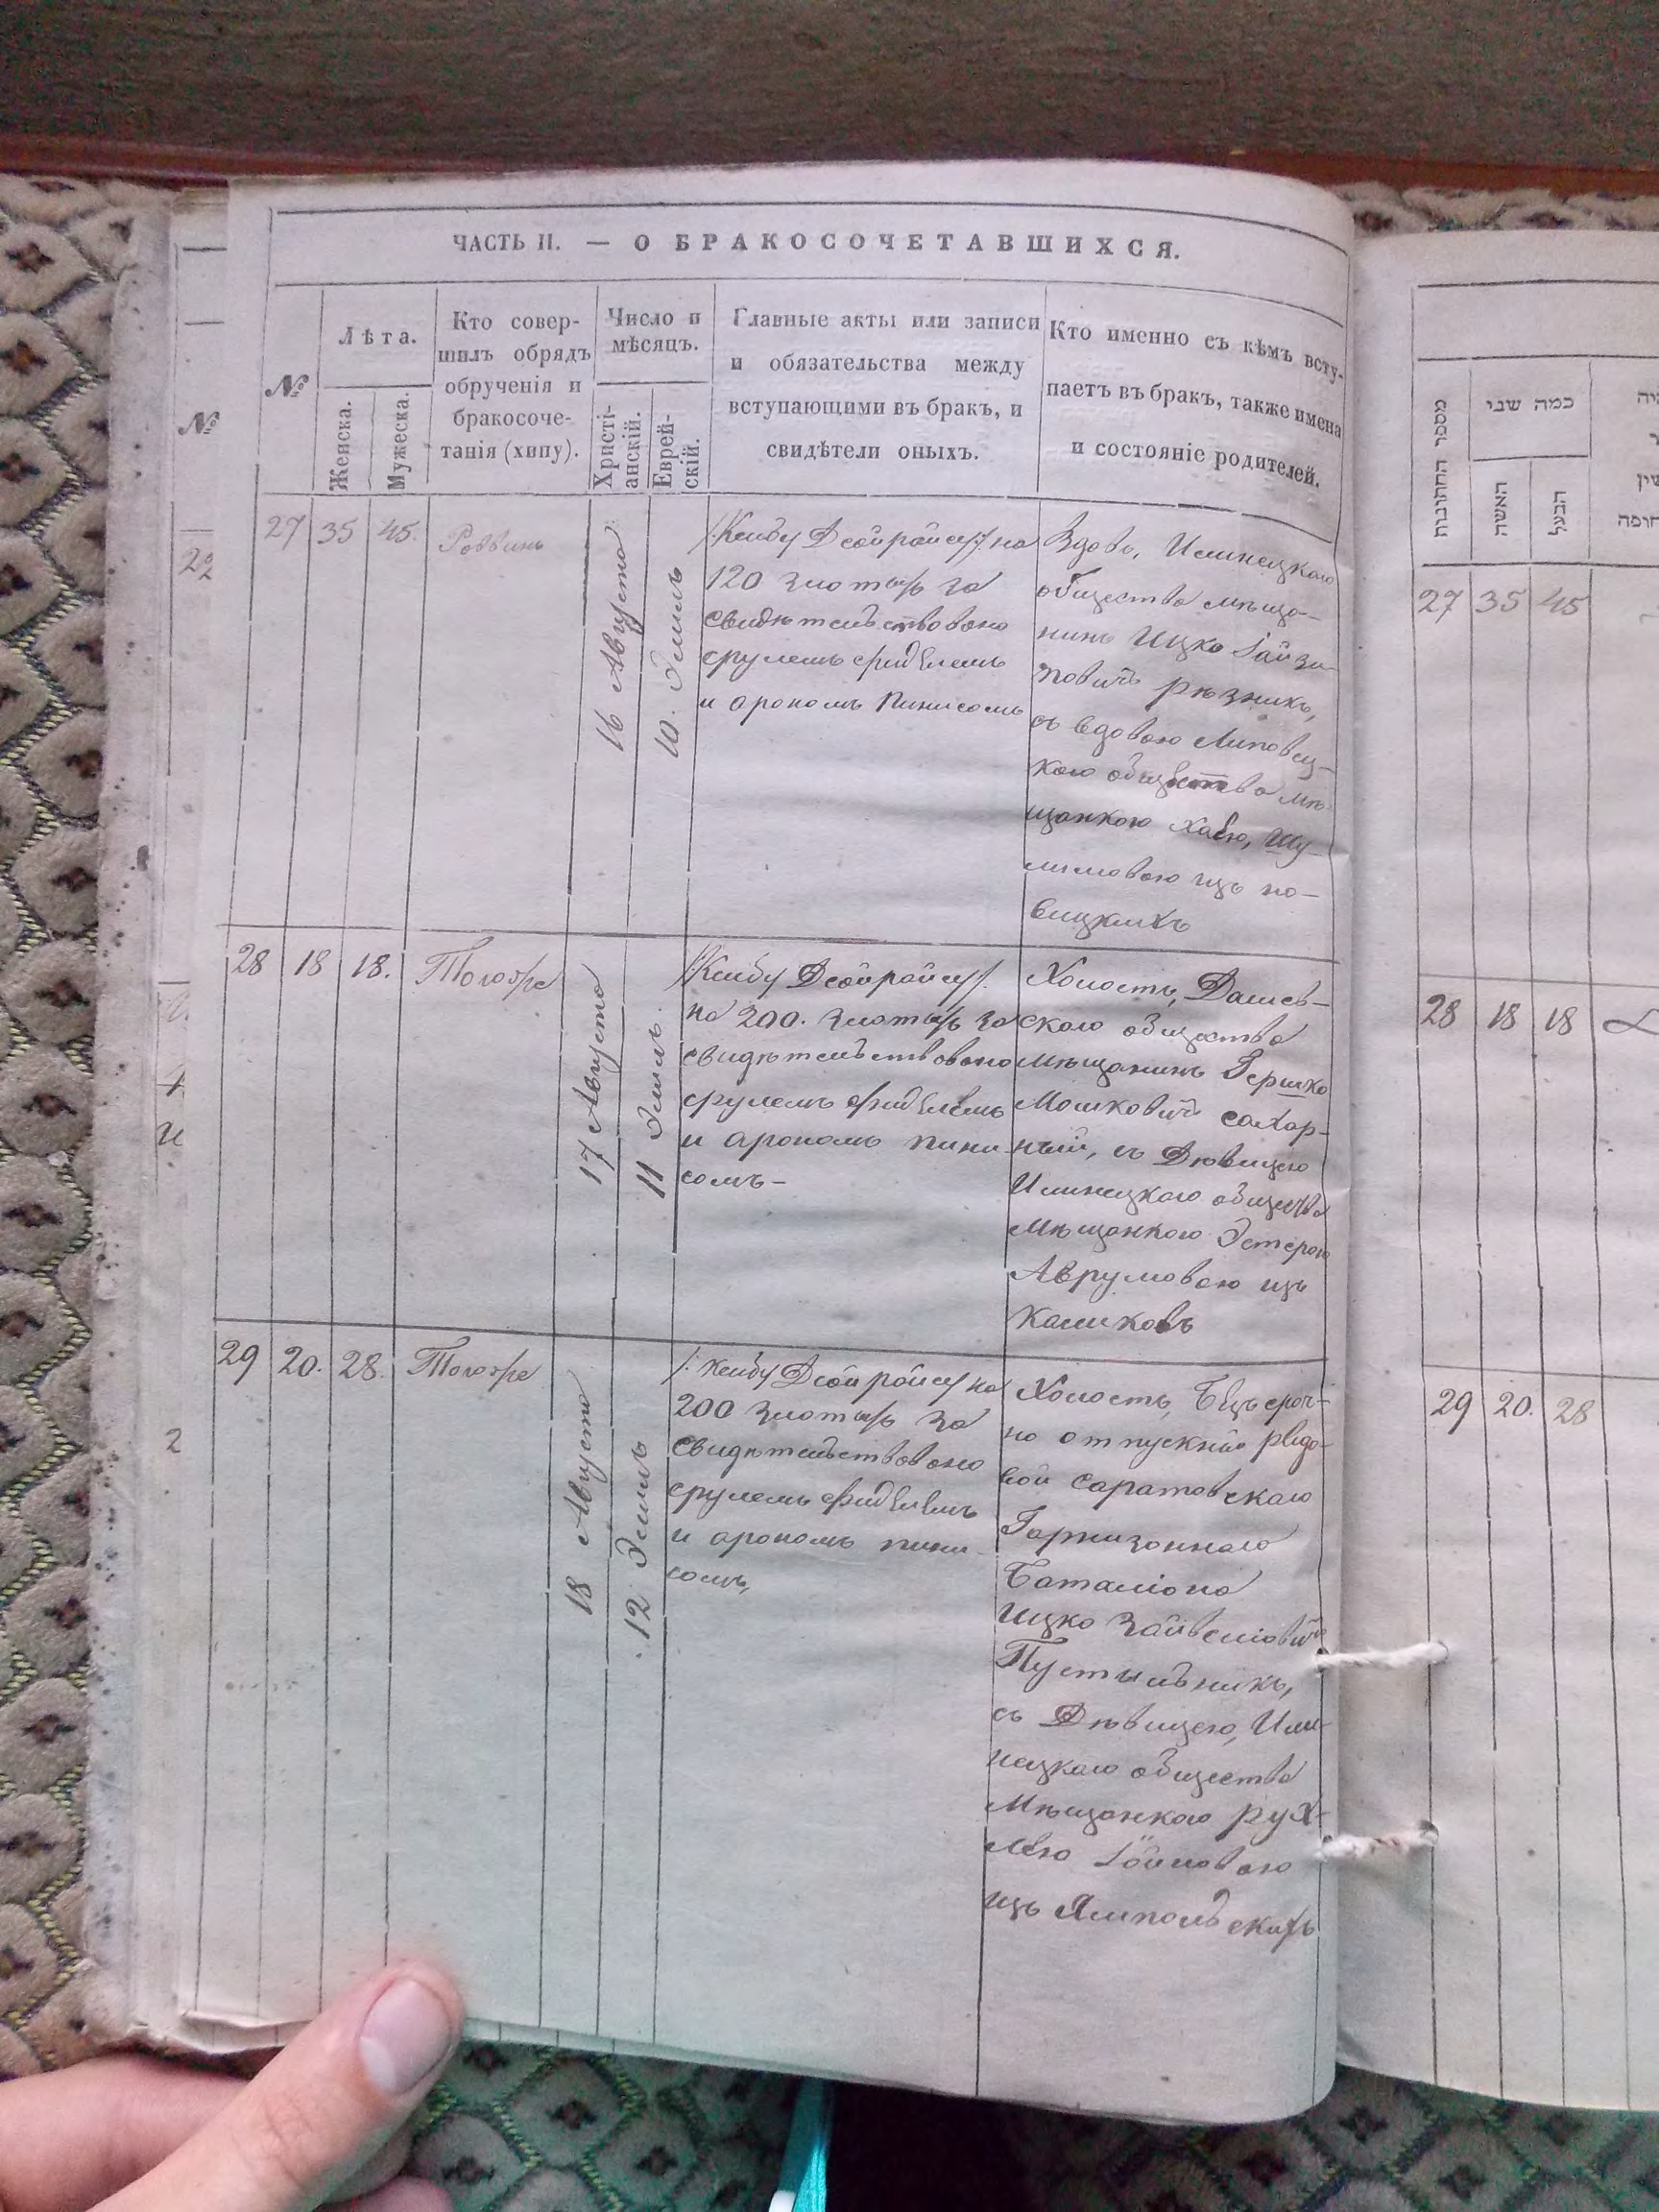 ЧАСТЬ II. — О БРАКОСОЧЕТАВШИХСЯ.
№
№
Лѣта.
Женска.
Мужеска.
Кто совер-
шилъ обрядъ
обрученія и
бракосоче-
танія (хипу).
Число и
мѣсяцъ.
Христі-
анскій.
Еврей-
скій.
Главные акты или записи
и обязательства между
вступающими въ бракъ, и
свидѣтели оныхъ.
Кто именно съ кѣмъ всту-
паетъ въ бракъ, также имена
и состояніе родителей.
27 35 45. Раввинъ
16 Августа
10. Элиль
/:Ксибу Дсойрайсу:/ на
120 злотыхъ за
свидѣтельствовано
срулемъ фидлемъ
и арономъ Пинисомъ
Вдовъ, Илинецкаго
общества мѣща-
нинъ Ицко
рѣзникъ,
съ вдовою Липовец-
каго общества мѣ-
щанкою Хаею, Шу-
лимовою изъ но-
вицкихъ
28 18 18. Тотоже
17 Августа
11 Элиль.
/:Ксибу Дсойрайсу/.
на 200. злотыхъ за
свидѣтельствовано
срулемъ фидлемъ
и арономъ пини
сомъ-
Холостъ, Дашев-
скаго общества
мѣщанинъ Гершко
Мошковичъ сахар-
ный, съ Дѣвицею
Илинецкаго общества
Мѣщанкою Эстерою
Аврумовою изъ
29 20. 28. Тотоже
18 Августа
12 Элиль
/: Ксибу Дсойрайсу на
200 злотыхъ за
свидѣтельствовано
срулемъ фидлемъ
и арономъ пини-
сомъ,
Холостъ, Безсроч-
но отпускной рядо-
вой Саратовскаго
Гарнизоннаго
Баталіона
Ицко Зайвеліовичъ
Пустыльникъ,
съ Дѣвицею, Или-
нецкаго общества
Мѣщанкою рух-
лею
изъ Ямпольскихъ
22
2
מספר החתונות
כמה שני
האשה
הבעל
27 35 45
28 18 18
29 20. 28